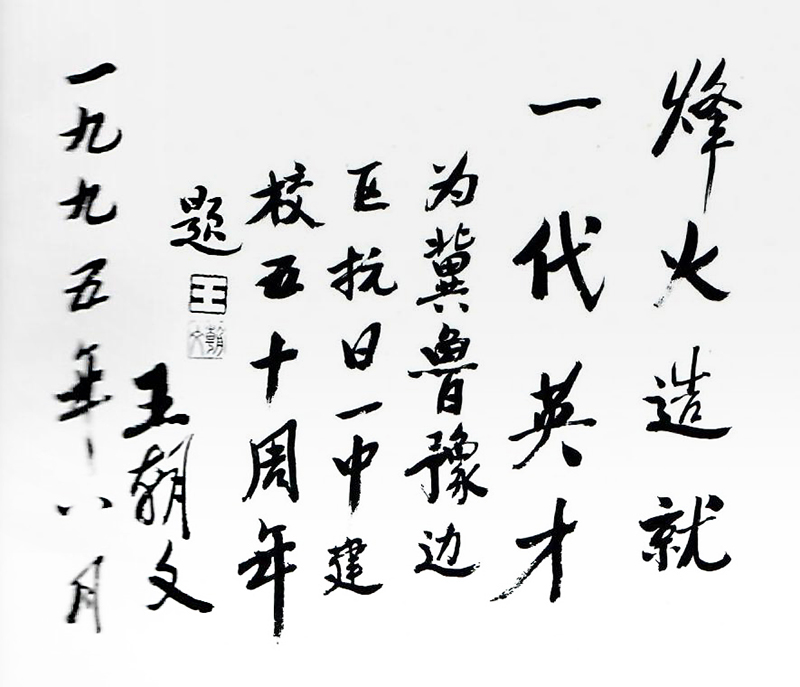 烽火造就
一代英才
为冀鲁豫边
区抗日一中建
校五十周年
题
王朝文
一九九五年八月
王
朝文